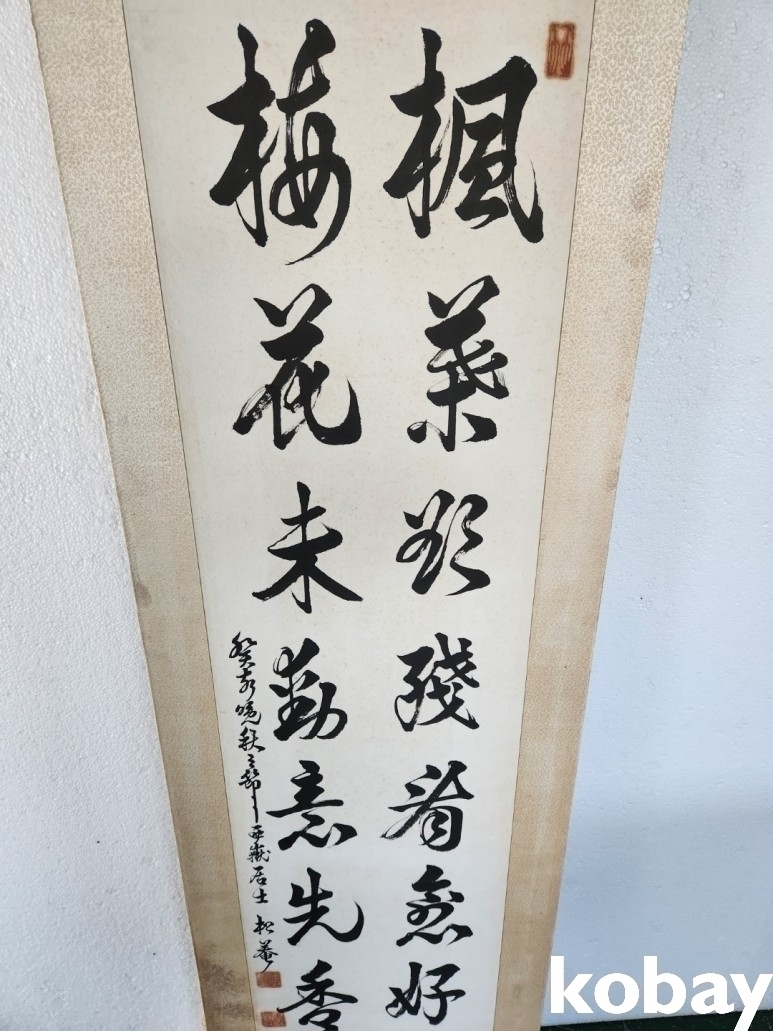 楓葉欲殘看愈好
梅花未動意先香
癸亥晚秋之節 居士 松菴
kobay